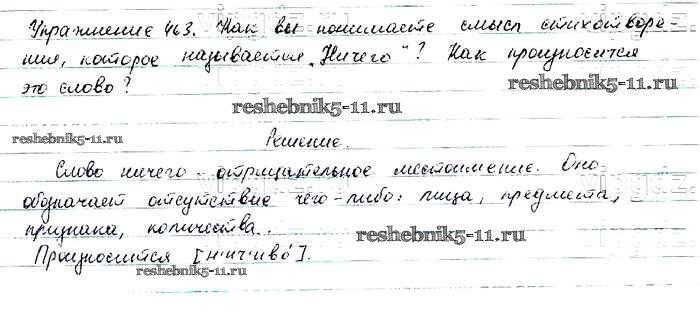 Упражнение 463. Как вы понимаете смысл стихотворе-
ния, которое называется „Ничего"? Как произносится
это слово?
reshebnik5-11.ru
reshebnik5-11.ru
Решение.
Слово ничего - отрицательное местоимение. Оно
обозначает отсутствие чего-либо: лица, предмета,
признака, количества.
reshebnik5-11.ru
Произносится [н'ич'иво́].
reshebnik5-11.ru